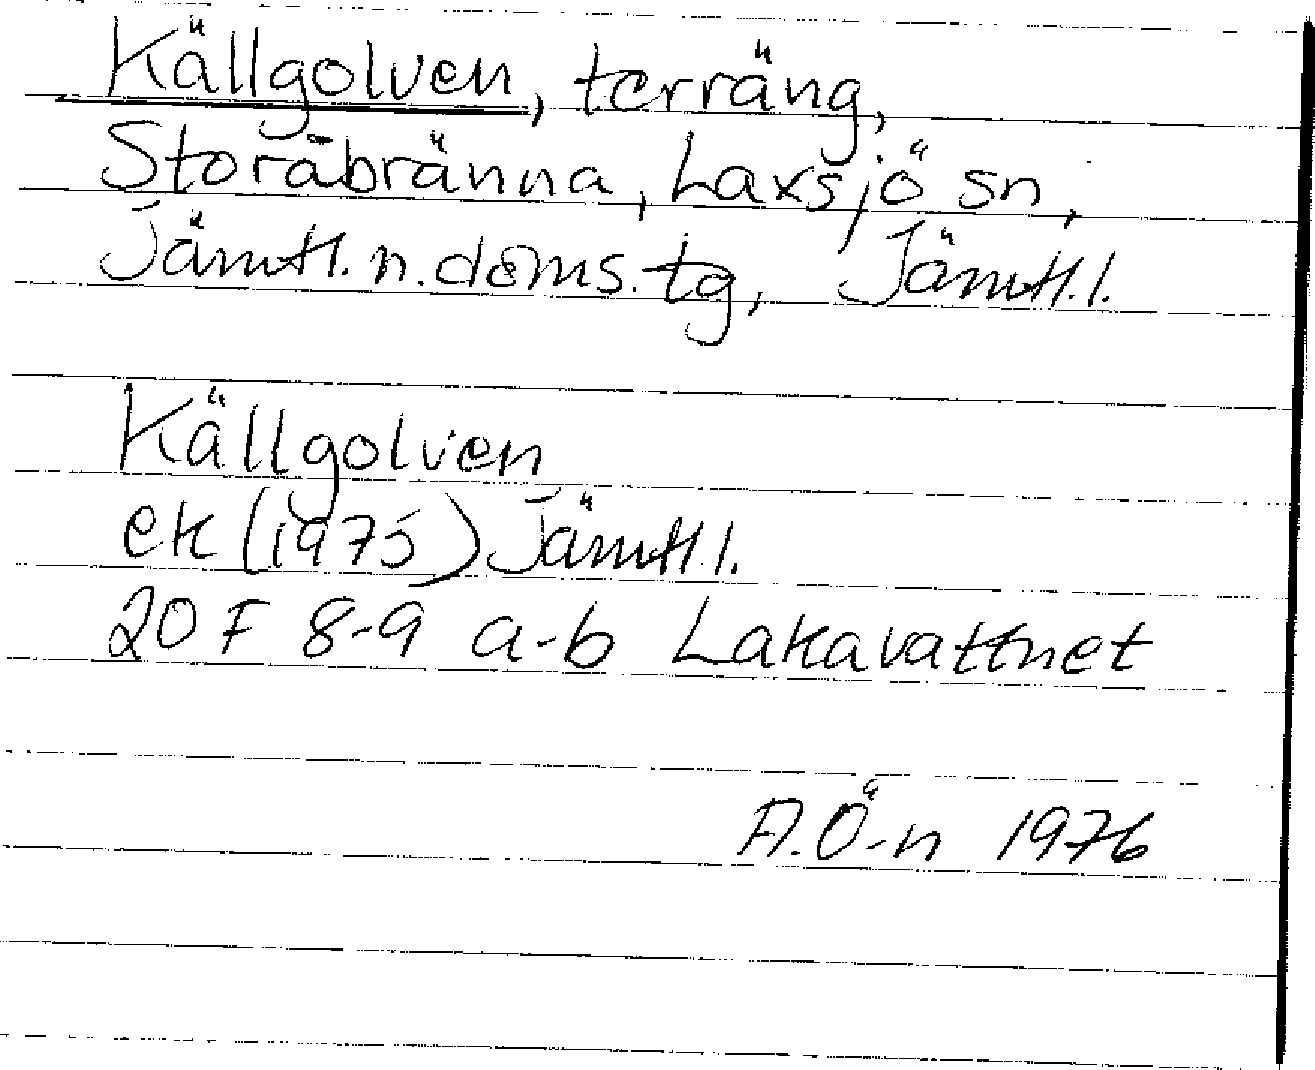 Källgolven, terräng,
Storåbränna, Laxsjö sn,
Jämtl. n. doms. tg, Jämtl. l.
Källgolven
ek (1975) Jämtl. l.
20 F 8-9 a-b Lakavattnet
A.Ö-n 1976